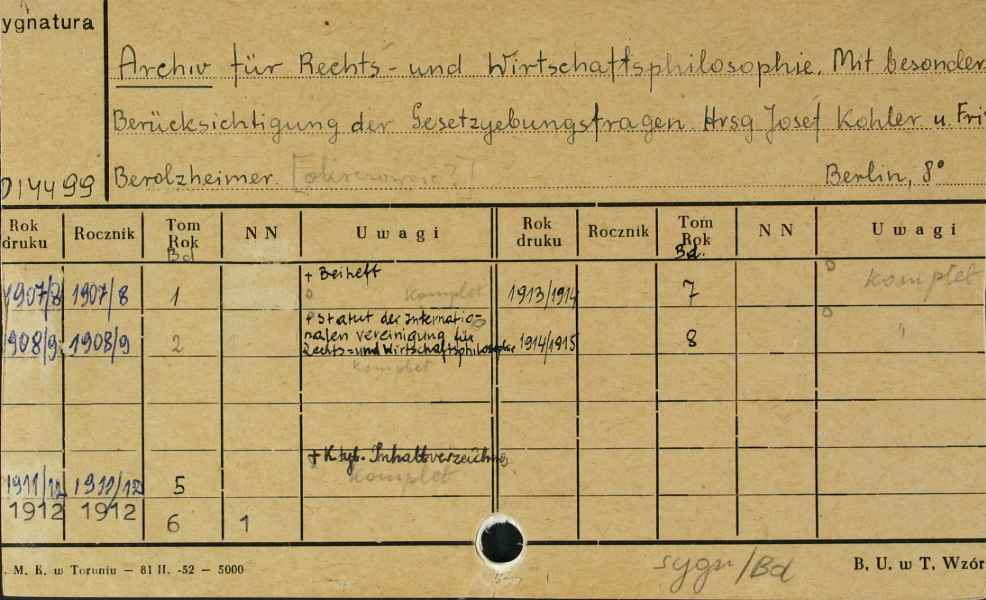 ygnatura
Archiv für Rechts- und Wirtschaftsphilosophie. Mit besonder
Berücksichtigung der Gesetzgebungsfragen Hrsg Josef Kohler u. Fri
Berolzheimer. Berlin, 8°
014499
Rok druku Rocznik Tom Rok Bd NN Uwagi Rok druku Rocznik Tom Rok Bd. NN Uwagi
1907/8 1907/8 1 + Beiheft komplet 1913/1914 7 komplet
1908/9 1908/9 2 + Statut der Internatio-
nalen Vereinigung für
Rechts- und Wirtschaftsphilosophie 1914/1915 8 "
komplet
1911/12 1911/12 5 + Inhaltsverzeichnis
komplet
1912 1912 6 1
sygn/Bd
. M. K. w Toruniu — 81 II. -52 — 5000 B. U. w T. Wzór